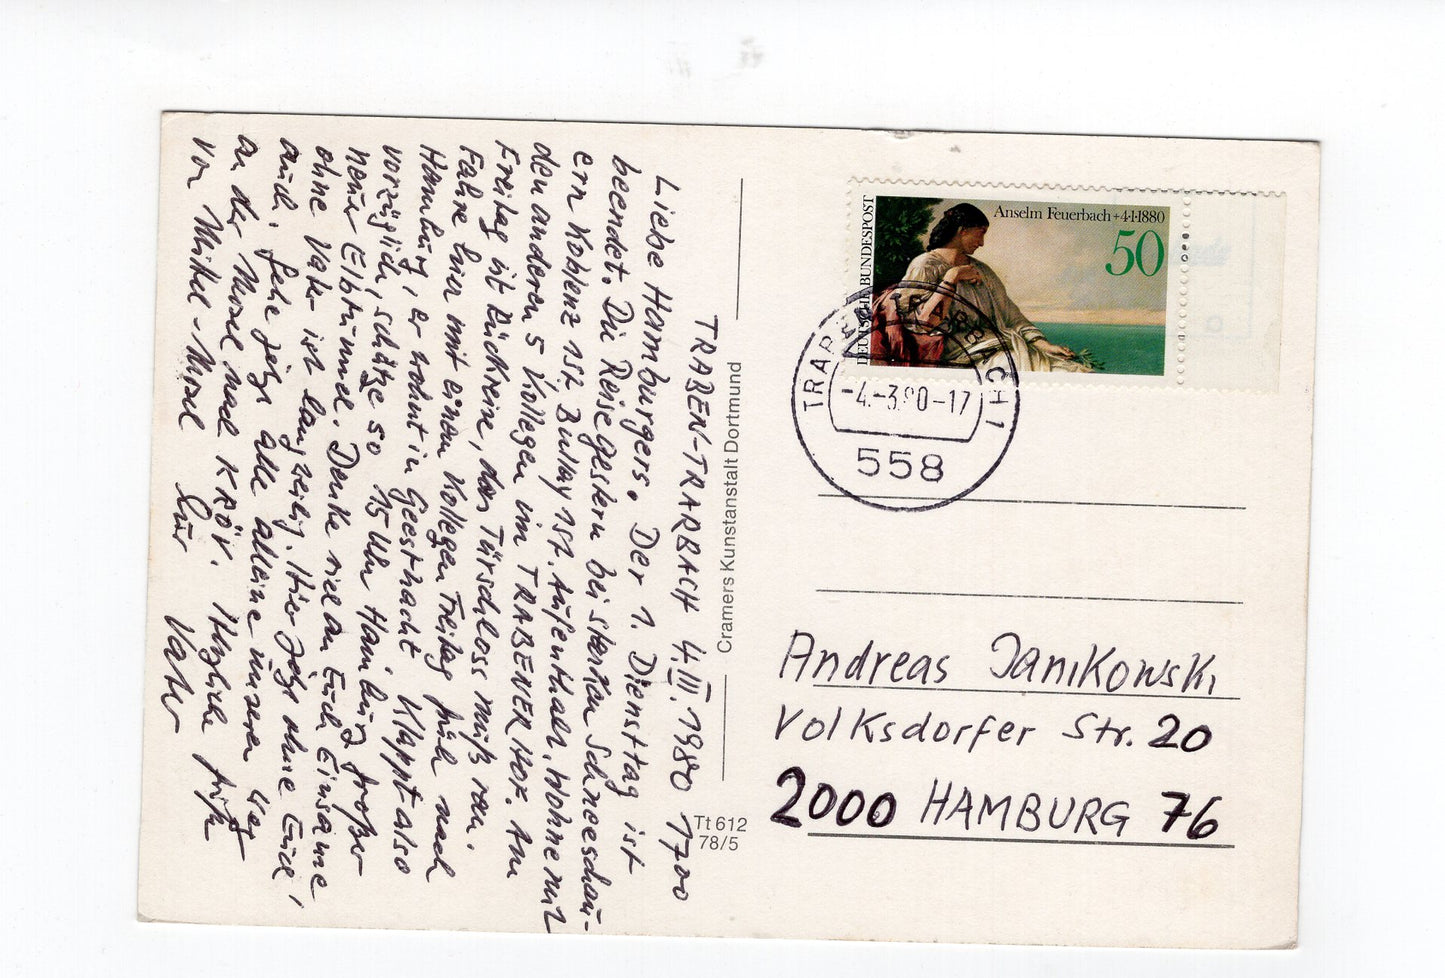 TRABEN-TRARBACH 4.III.1980 1700
Liebe Hamburgers. Der 1. Diensttag ist
beendet. Die Reise gestern bei starken Schneeschau-
ern Koblenz 1st, Bullay 1st. Aufenthalt. Wohne mit
den anderen 5 Kollegen im TRABENER HOF. Am
Freitag ist Rückreise, das Türschloss muß ran.
Fahre hier mit einem Kollegen Freitag früh nach
Hamburg, er wohnt in Geesthacht. Klappt also
vorzüglich, schätze so 15 Uhr Hamburg großer
neuer Elbtunnel. Denke viel an Euch Einsame
ohne Vater ist langweilig. Hier jetzt ohne Euch,
auch. Gehe jetzt alle alleine unseren Weg
an der Mosel nach KRÖV. Herzliche Grüße
von Mittel-Mosel Euer Vater
Cramers Kunstanstalt Dortmund
Tt 612
78/5
DEUTSCHE BUNDESPOST
Anselm Feuerbach +4·1·1880
50
TRABEN-TRARBACH 1
-4.-3.80-17
558
Andreas Janikowski
Volksdorfer Str. 20
2000 HAMBURG 76